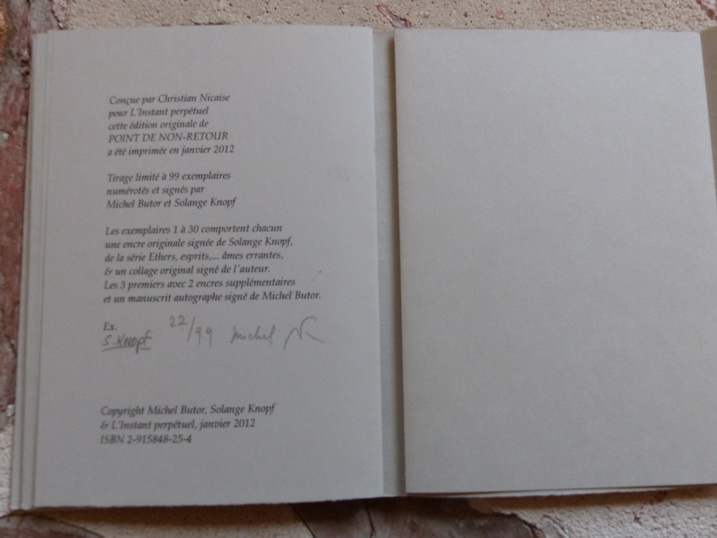 Conçue par Christian Nicaise
pour L'Instant perpétuel
cette édition originale de
POINT DE NON-RETOUR
a été imprimée en janvier 2012
Tirage limité à 99 exemplaires
numérotés et signés par
Michel Butor et Solange Knopf
Les exemplaires 1 à 30 comportent chacun
une encre originale signée de Solange Knopf,
de la série Ethers, esprits,... âmes errantes,
& un collage original signé de l'auteur.
Les 3 premiers avec 2 encres supplémentaires
et un manuscrit autographe signé de Michel Butor.
Ex. 22/99 Michel
S. Knopf
Copyright Michel Butor, Solange Knopf
& L'Instant perpétuel, janvier 2012
ISBN 2-915848-25-4